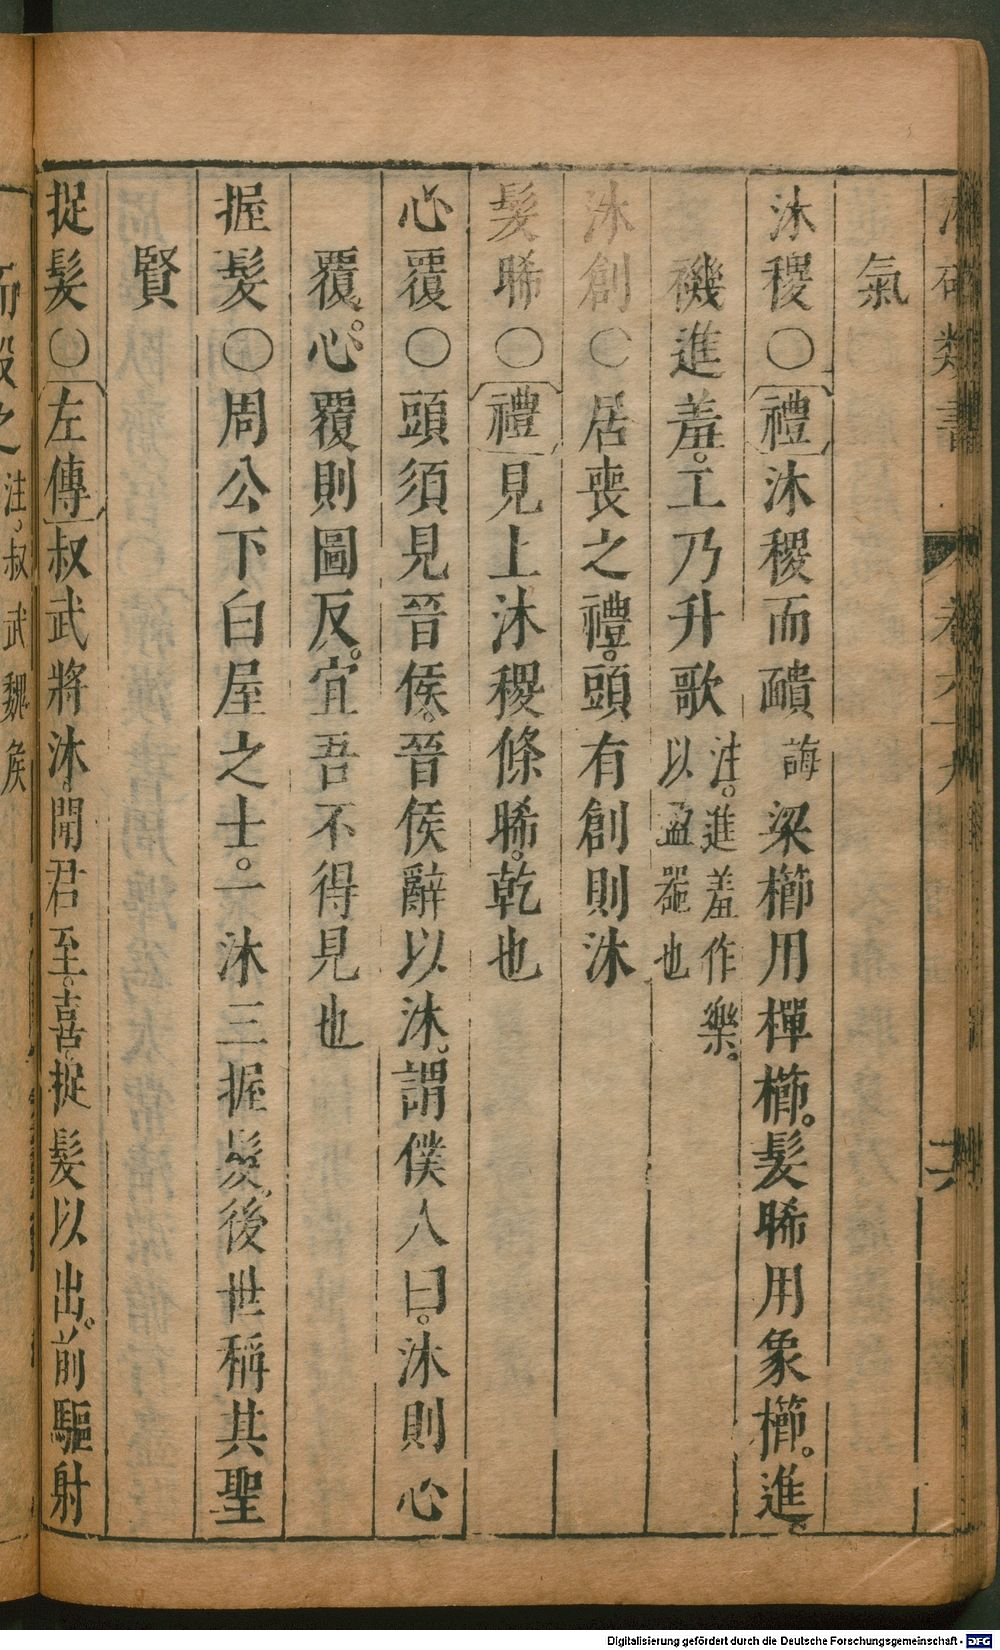 氣
沐稷○禮沐稷而靧誨粱櫛用樿櫛。髮晞用象櫛。進
禨進羞。工乃升歌注。進羞作樂。以盈器也
沐創○居喪之禮。頭有創則沐
髮晞○禮見上沐稷條晞。乾也
心覆○頭須見晉侯。晉侯辭以沐。謂僕人曰。沐則心
覆。心覆則圖反。宜吾不得見也
握髮○周公下白屋之士。一沐三握髮。後世稱其聖
賢
捉髮○左傳叔武將沐。聞君至。喜。捉髮以出。前驅射
而殺之注。叔武魏侯
Digitalisierung gefördert durch die Deutsche Forschungsgemeinschaft - DFG